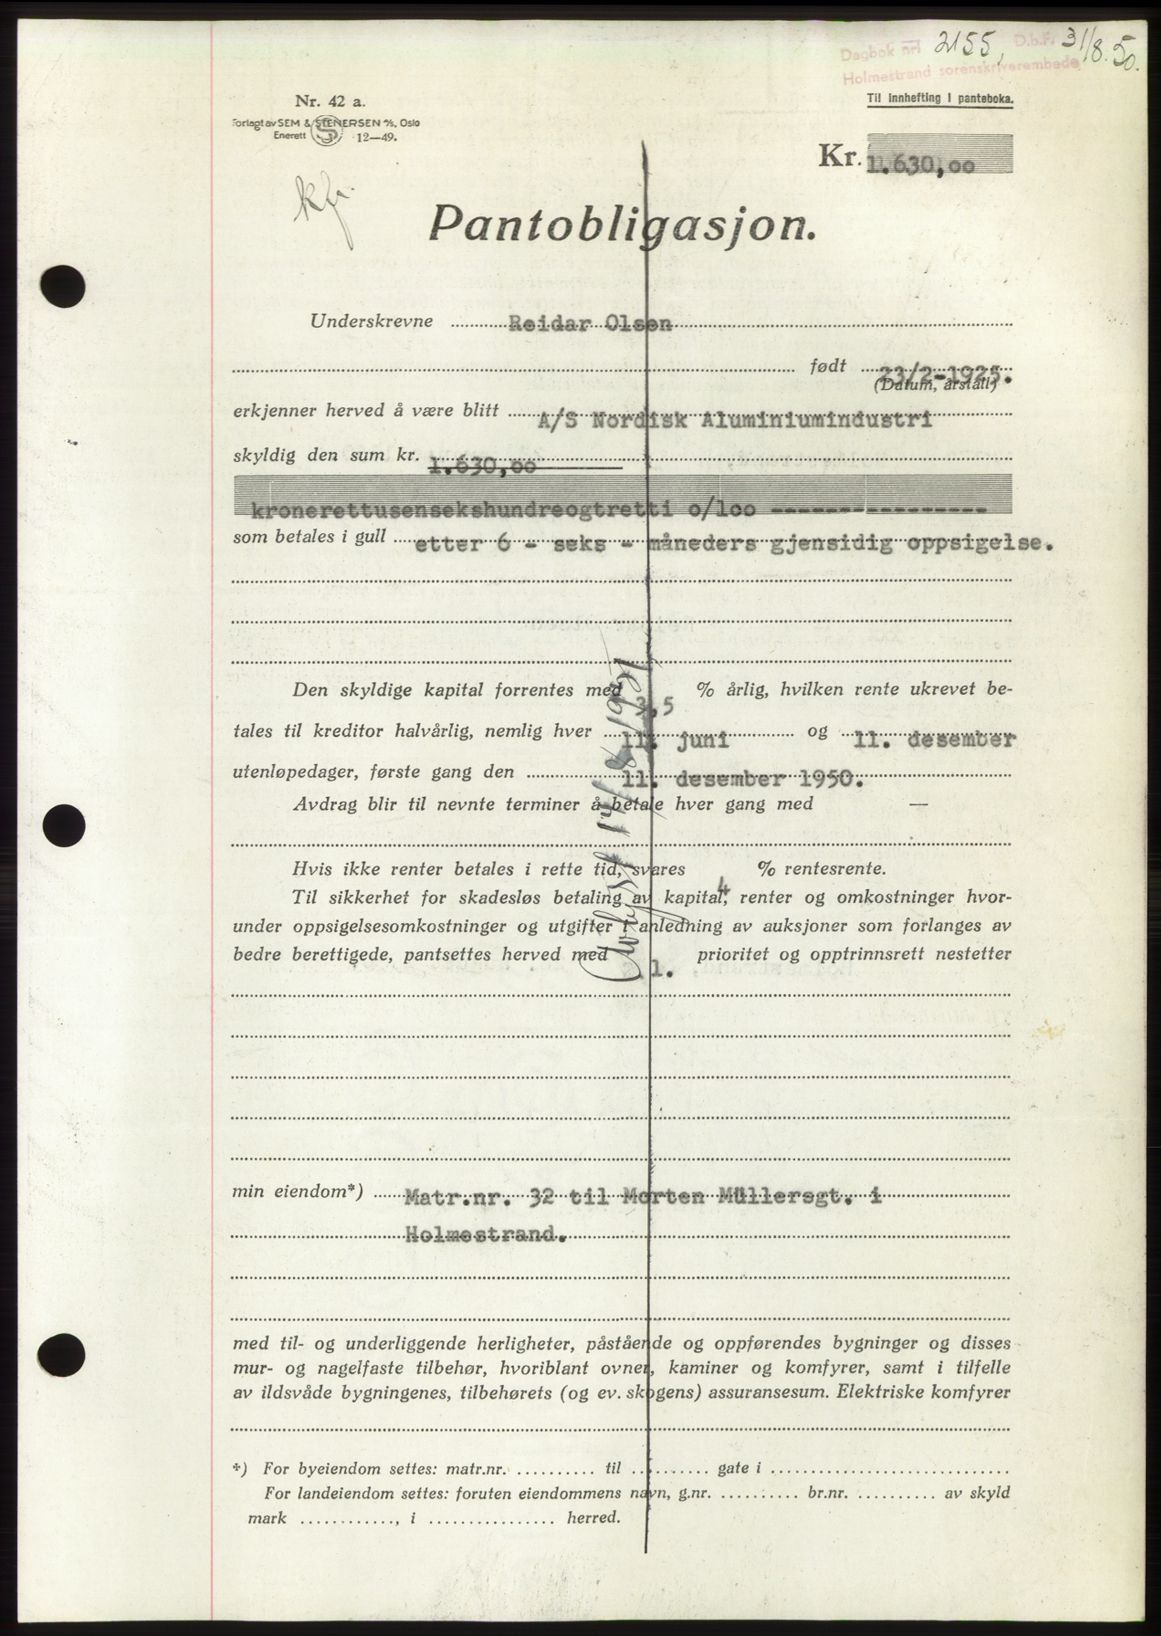 Dagbok nr. 2155, D.b.F. 31/8.50.
Holmestrand sorenskriverembede
Til innhefting i panteboka.
Nr. 42 a.
Forlagt av SEM & STENERSEN A/S, Oslo
Enerett S 12—49.
Kr. 1.630,oo
kfr.
Pantobligasjon.
Underskrevne Reidar Olsen
født 23/2-1925.
(Datum, årstall)
erkjenner herved å være blitt A/S Nordisk Aluminiumindustri
skyldig den sum kr. 1.630,oo
kronerettusensekshundreogtretti o/loo ----------------
som betales i gull etter 6 - seks - måneders gjensidig oppsigelse.
Den skyldige kapital forrentes med 3,5 % årlig, hvilken rente ukrevet be-
tales til kreditor halvårlig, nemlig hver 11. juni og 11. desember
utenløpedager, første gang den 11. desember 1950.
Avdrag blir til nevnte terminer å betale hver gang med —
Hvis ikke renter betales i rette tid, svares 4 % rentesrente.
Til sikkerhet for skadesløs betaling av kapital, renter og omkostninger hvor-
under oppsigelsesomkostninger og utgifter i anledning av auksjoner som forlanges av
bedre berettigede, pantsettes herved med 1. prioritet og opptrinnsrett nestetter
Avlyst 14/8 1951
min eiendom*) Matr.nr. 32 til Morten Müllersgt. i
Holmestrand.
med til- og underliggende herligheter, påstående og oppførendes bygninger og disses
mur- og nagelfaste tilbehør, hvoriblant ovner, kaminer og komfyrer, samt i tilfelle
av ildsvåde bygningenes, tilbehørets (og ev. skogens) assuransesum. Elektriske komfyrer
*) For byeiendom settes: matr.nr. .......... til .......... gate i ..............................
For landeiendom settes: foruten eiendommens navn, g.nr. .......... br.nr. .......... av skyld
mark ............, i ................ herred.